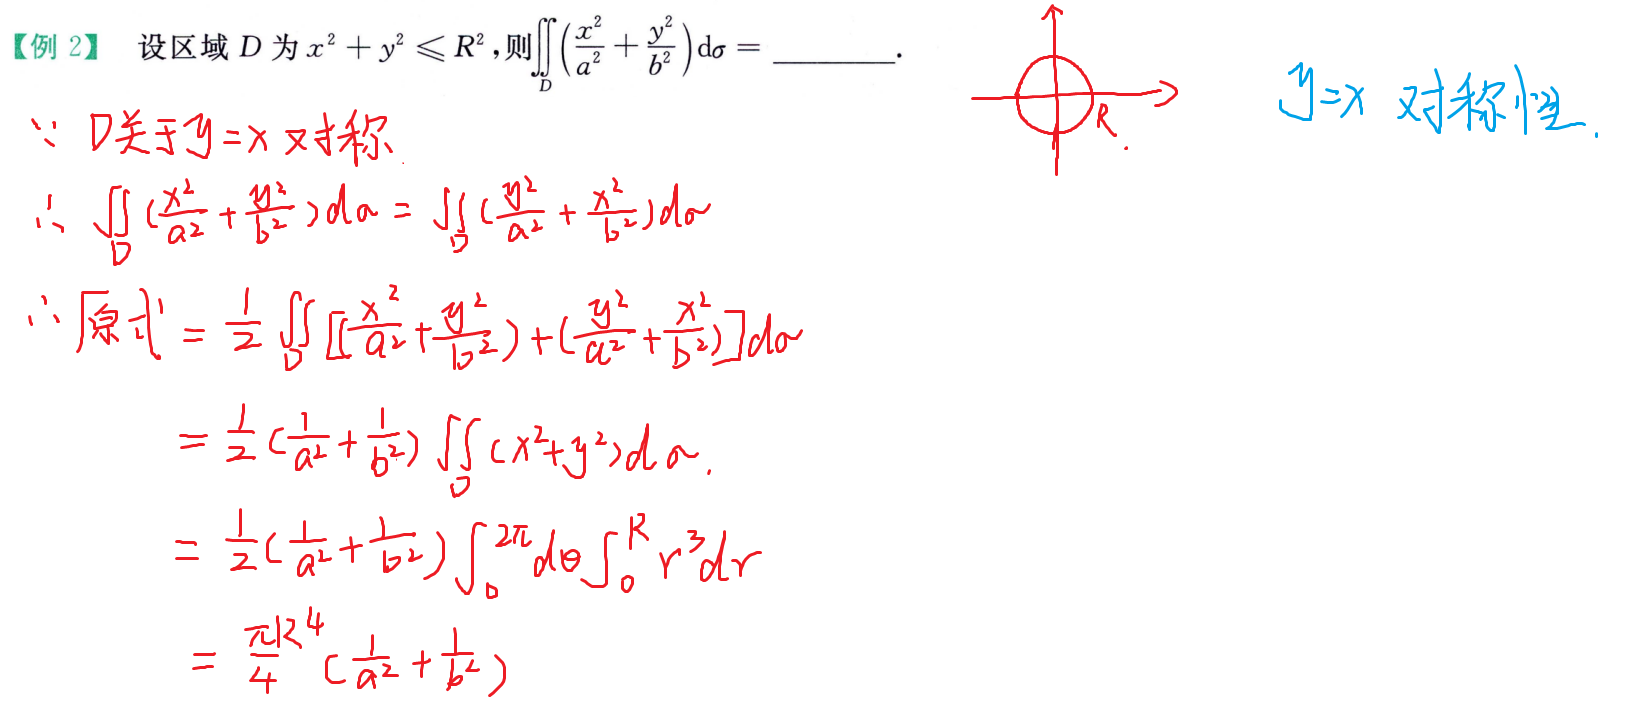 【例 2】 设区域 D 为 x² + y² ⩽ R²,则∬_D (x²/a² + y²/b²)dσ = ________.
R.
y=x 对称性.
∵ D关于y=x对称
∴ ∬_D (x²/a² + y²/b²)dσ = ∬_D (y²/a² + x²/b²)dσ
∴ 原式 = 1/2 ∬_D [(x²/a² + y²/b²) + (y²/a² + x²/b²)]dσ
= 1/2 (1/a² + 1/b²) ∬_D (x²+y²)dσ.
= 1/2 (1/a² + 1/b²) ∫_0^{2π} dθ ∫_0^R r³dr
= πR⁴/4 (1/a² + 1/b²)